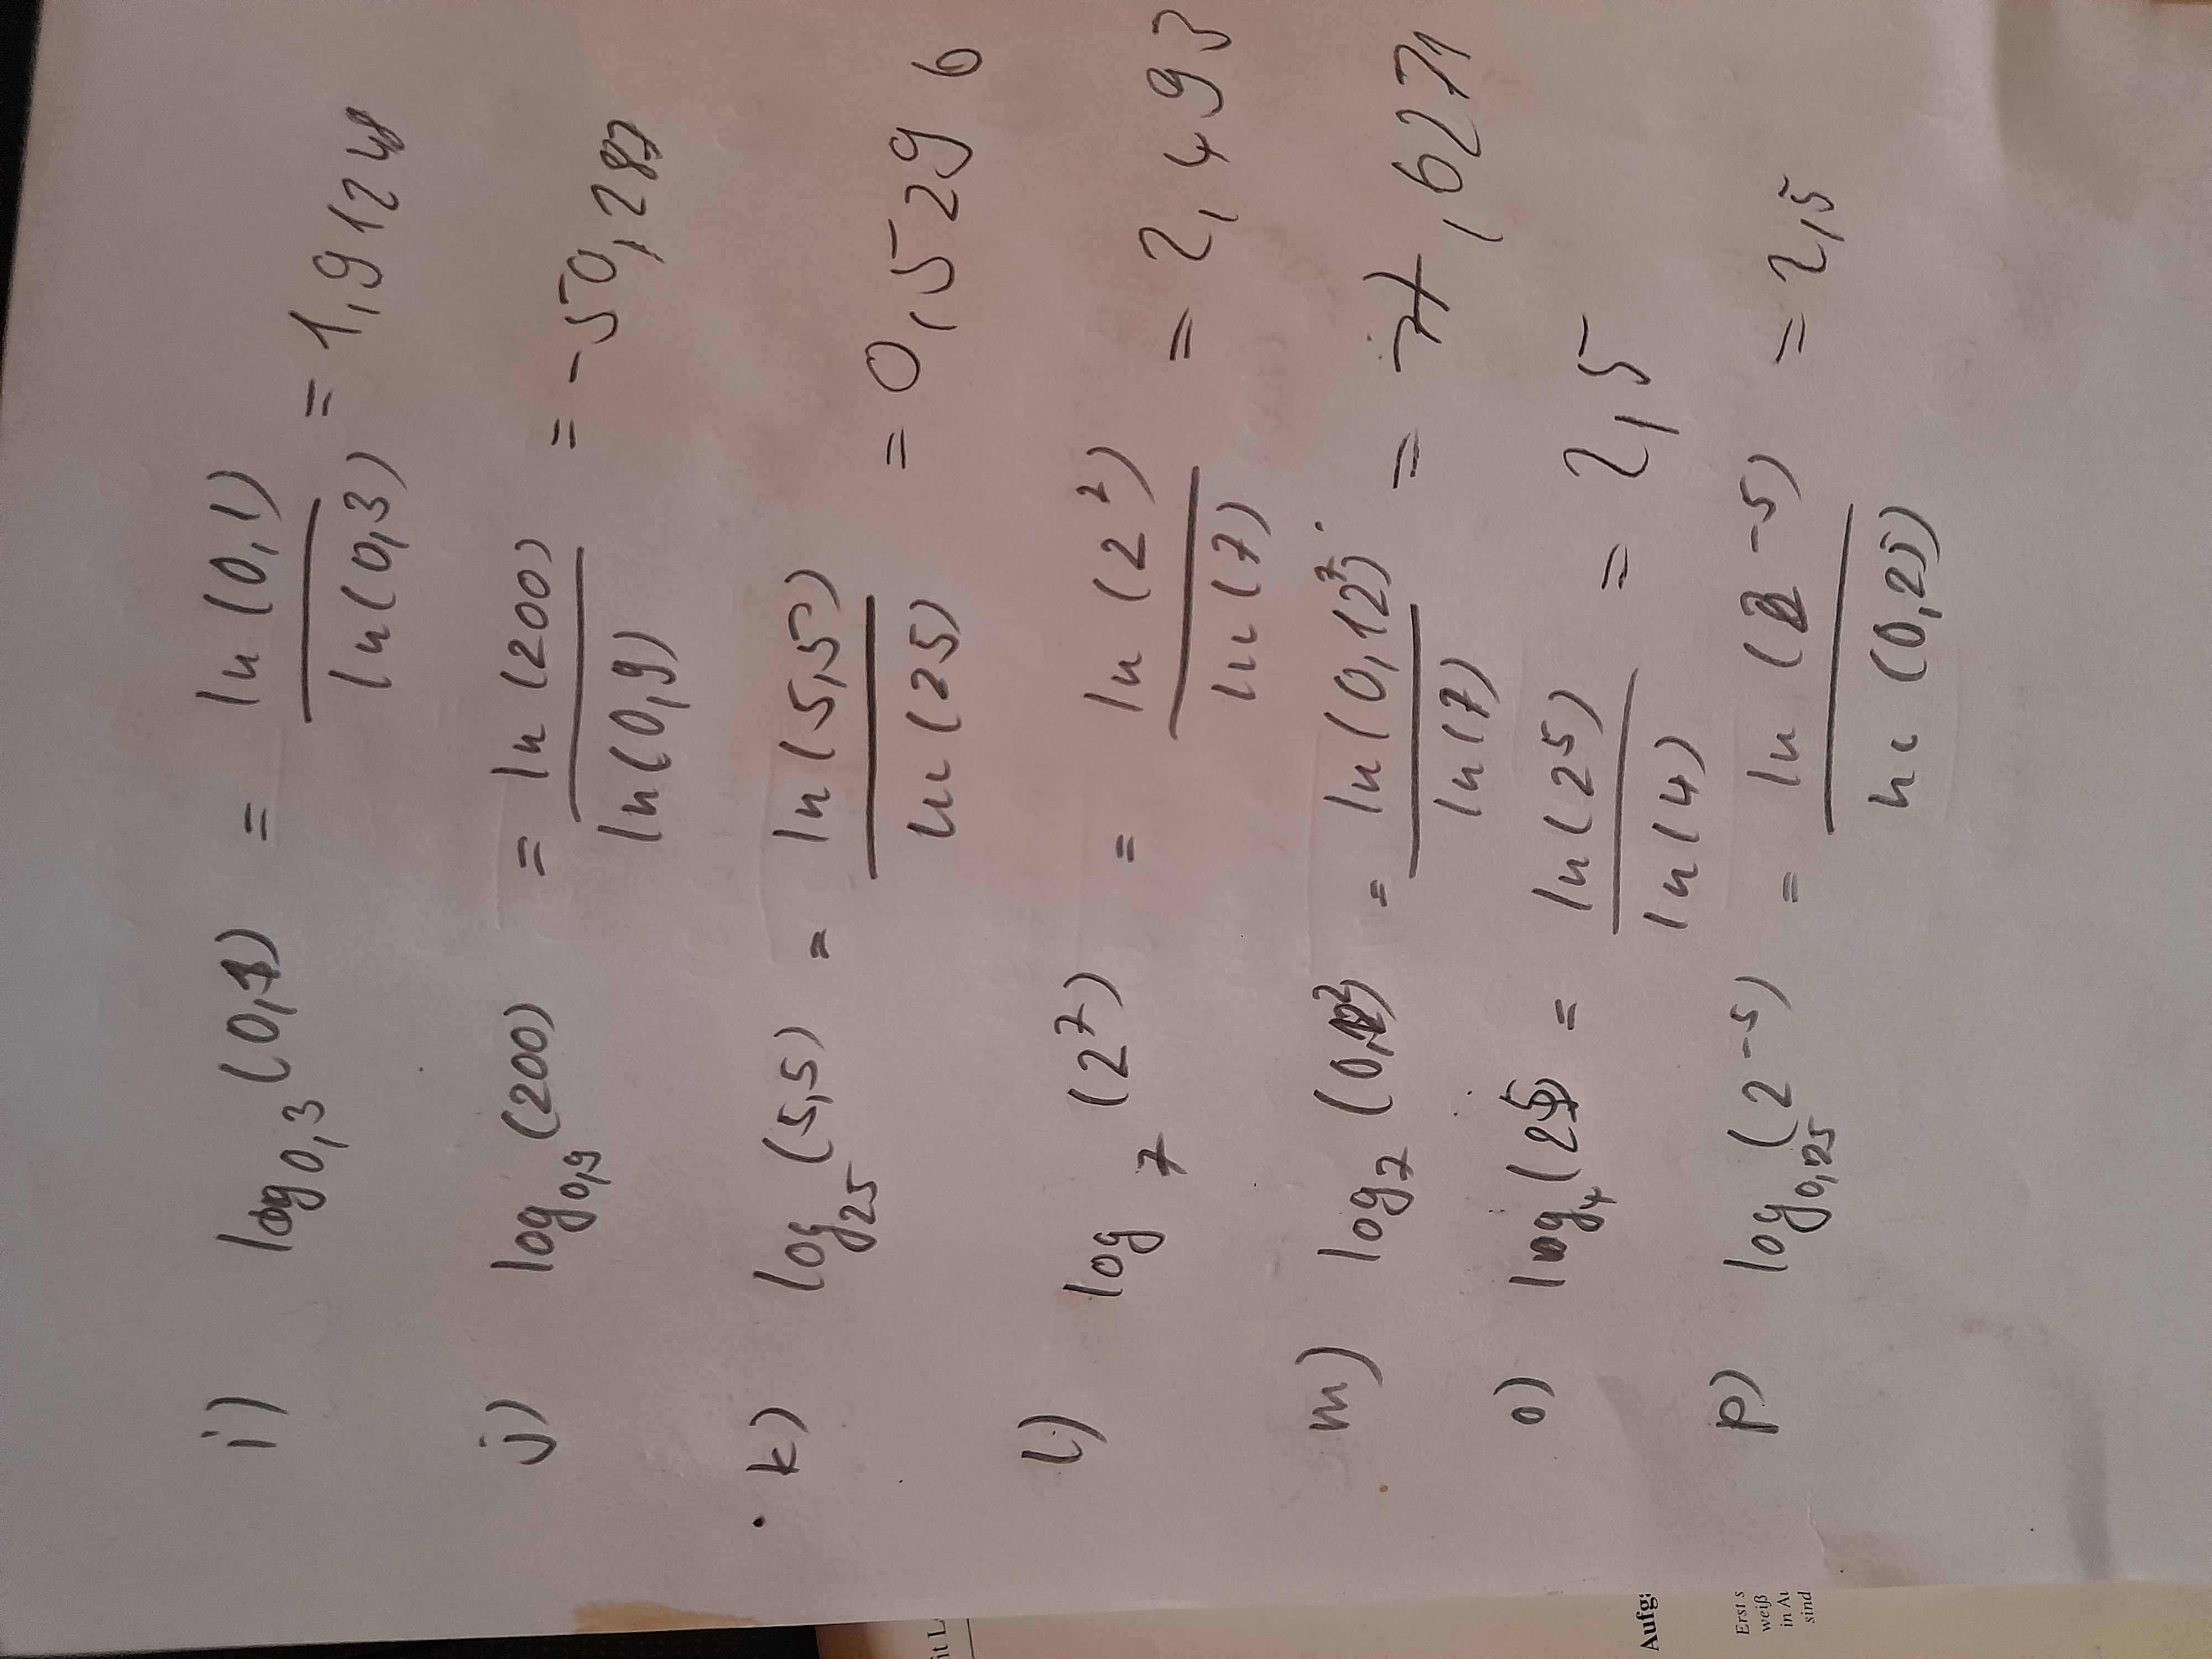 i) log0,3(0,1) = ln(0,1) / ln(0,3) = 1,9124
j) log0,9(200) = ln(200) / ln(0,9) = -50,287
k) log25(5,5) = ln(5,5) / ln(25) = 0,5296
l) log7(2⁷) = ln(2⁷) / ln(7) = 2,493
m) log7(0,12²) = ln(0,12⁷) / ln(7) = ,6271
o) log4(2⁵) = ln(2⁵) / ln(4) = 2,5
p) log0,25(2⁻⁵) = ln(2⁻⁵) / ln(0,25) = 2,5
it L
Aufg:
Erst s
weiß
in Au
sind